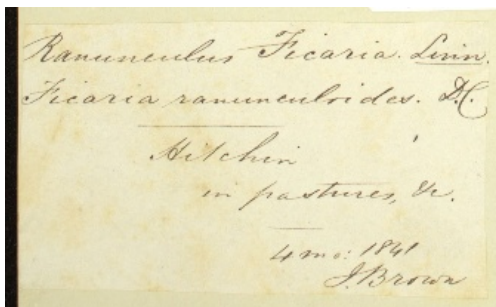 Ranunculus Ficaria. Linn.
Ficaria ranunculoides. D.C.
Hitchin
in pastures, &c.
4 mo: 1841
J. Brown